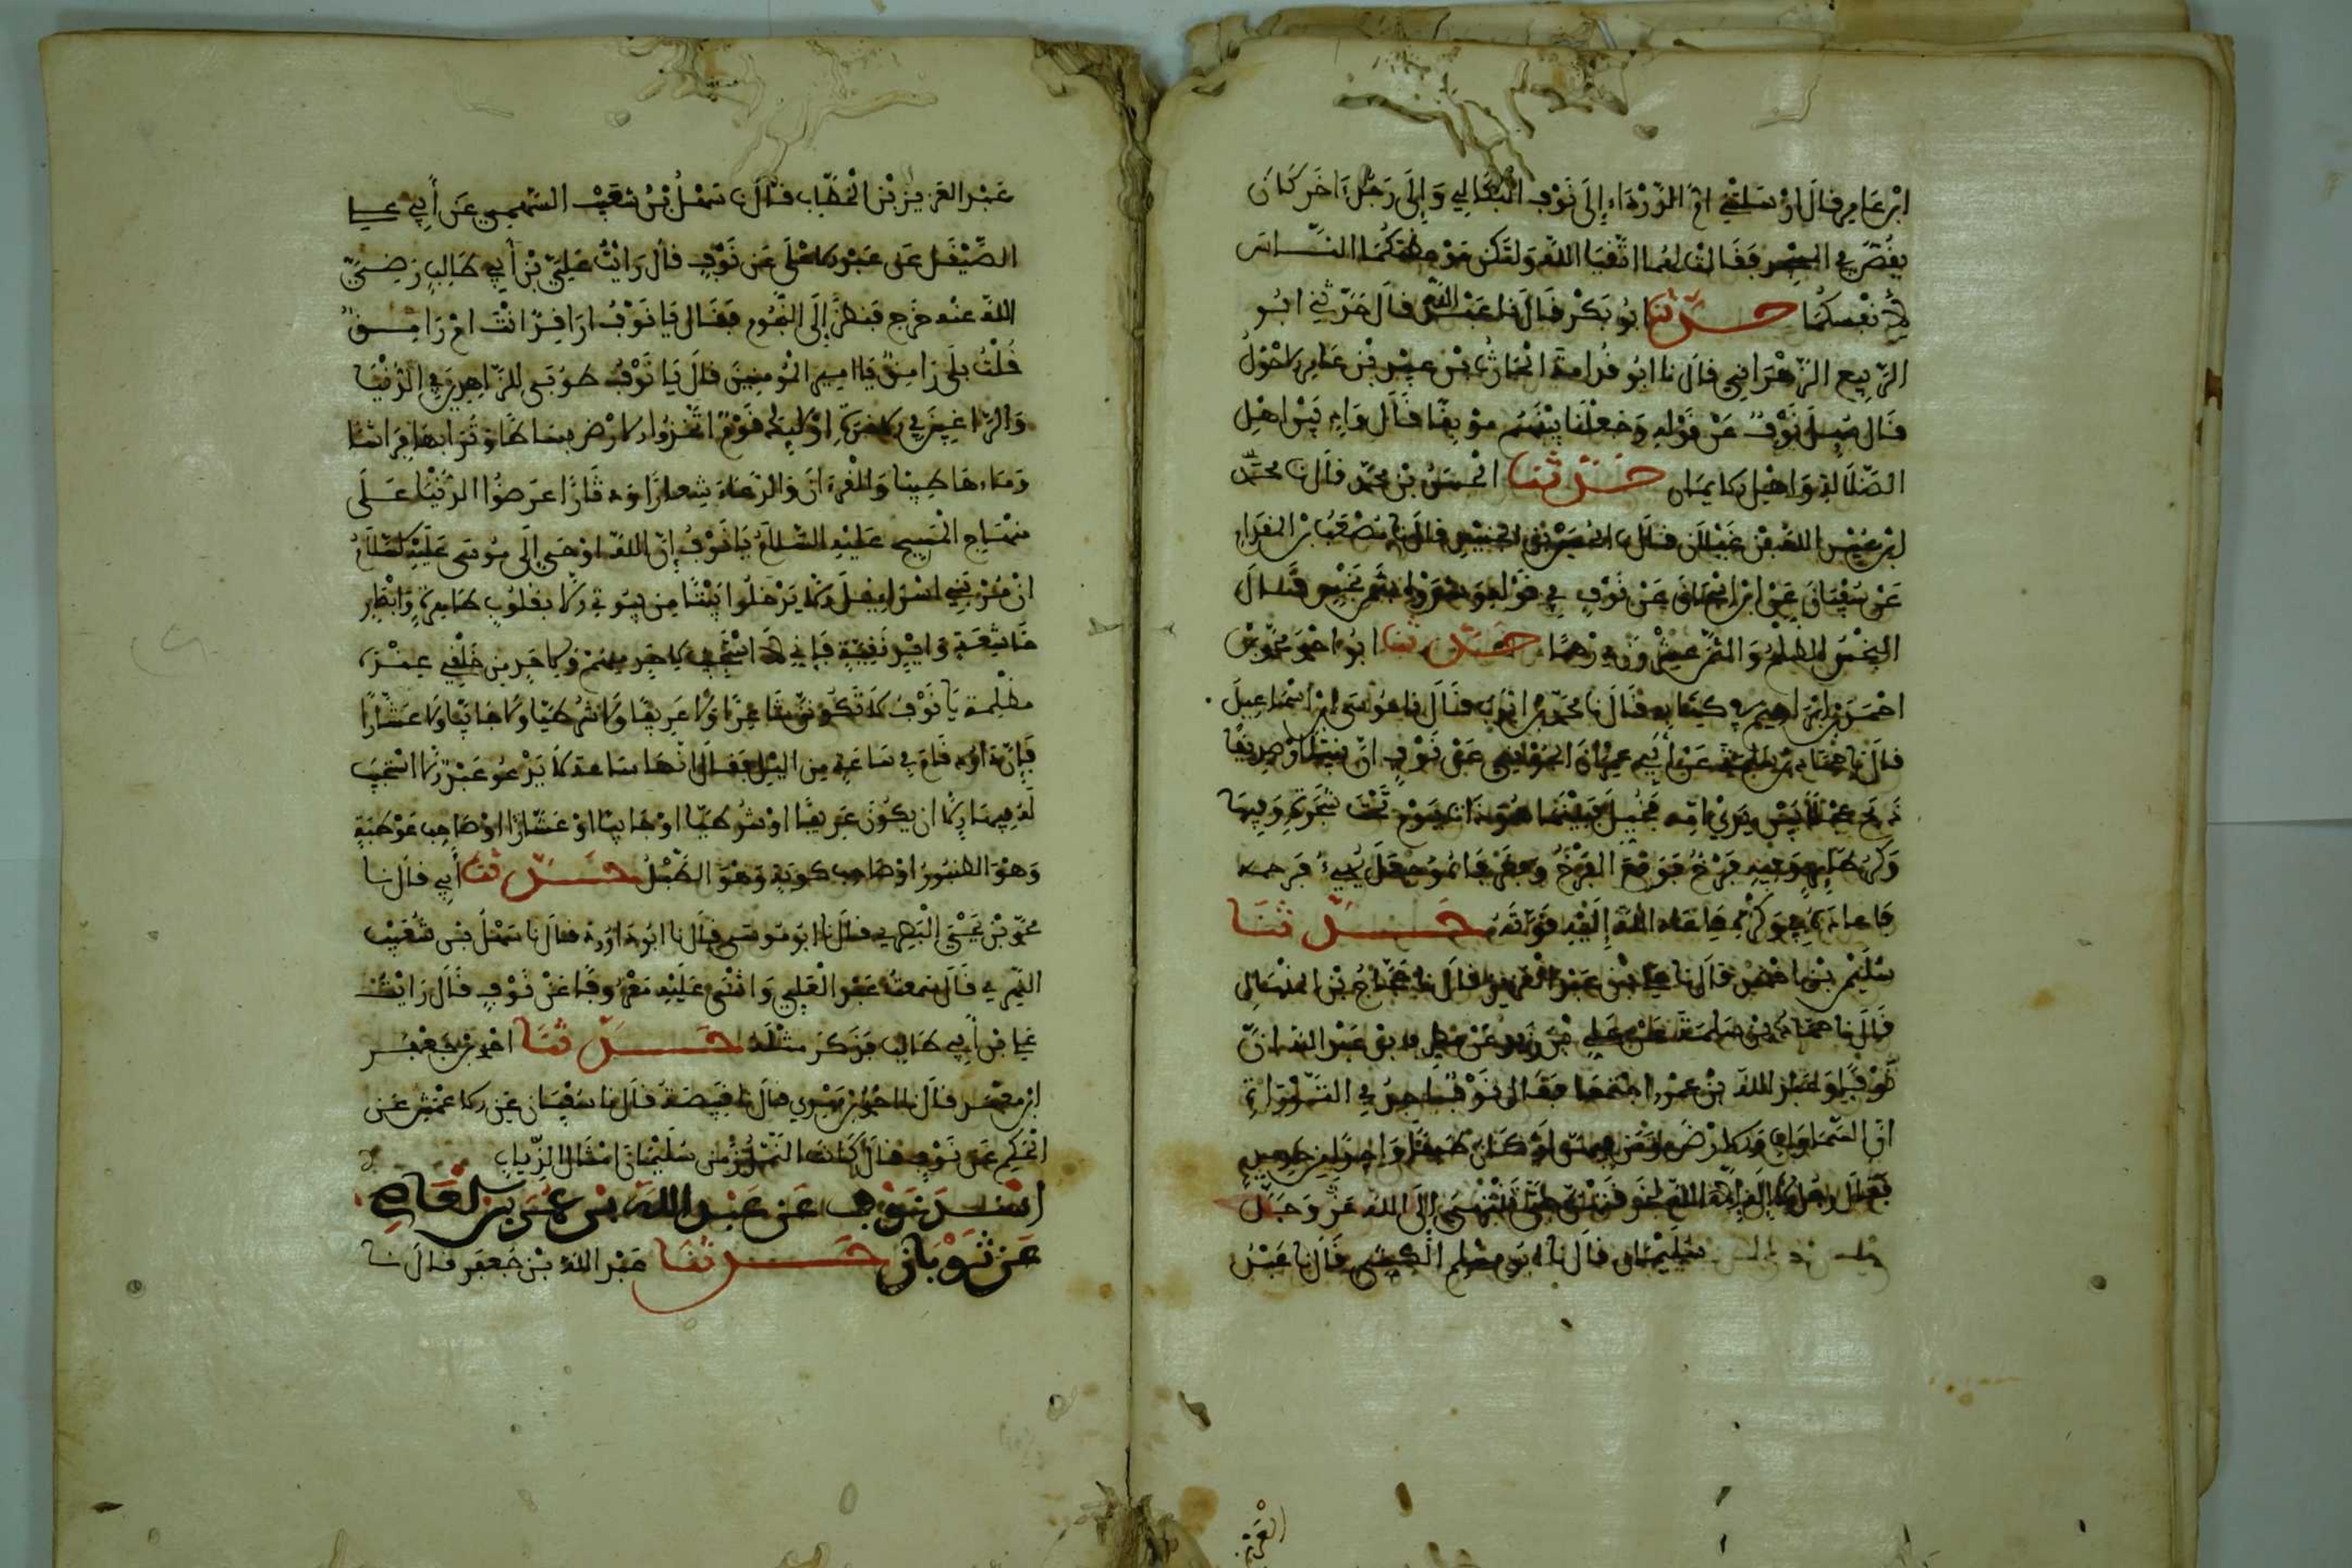 ابن عامر قال اوسلتني ام الدرداء إلى نوف البكالي وإلى رجل اخر كان
يقص في المسجد فقالت لهما اتقيا الله ولتكن موعظتكما الناس
لأنفسكما حدثنا ابو بكر قال نا عبد الله قال حدثني ابو
الربيع الزهراني قال نا ابو قدامة الحارث بن عبيد بن عامر الاحول
قال سيل نوف عن قوله وجعلنا بينهم موبقا قال واد بين اهل
الضلالة واهل الايمان حدثنا الحسن بن محمد قال نا محمد
ابن عبيد الله بن غيلان قال نا الحسين بن الجنيد قال نا مصعب بن المقدام
عن سفيان عن ابي اسحاق عن نوف في قوله وشروه بثمن بخيس قال
البخس الظلم والثمن عشرون درهما حدثنا ابو احمد محمد بن
احمد بن ابراهيم في كتابه قال نا محمد بن ايوب قال نا موسى ابن اسماعيل
قال نا حماد بن سلمة عن أبي عمران الجوني عن نوف ان نبيا او صديقا
ذبح عجلا بين يدي امه فخبل فبينما هو ذات يوم تحت شجرة وفيها
وكر طاير وفيه فرخ فوقع الفرخ وفغر فاه وجعل يصيء فرحمه
فاعاده في وكره فاعاد الله إليه قوته حدثنا
سليمن بن احمد قال نا علي بن عبد العزيز قال نا حجاج بن المنهال
قال نا حماد بن سلمة عن علي بن زيد عن مطرف بن عبد الله ان
نوفا وعبد الله بن عمرو اجتمعا فقال نوف اجد في التوراة
ان السماوات والارض وما فيهن لو كان طبقا واحدا من حديد
فقال رجل لا إله إلا الله لخرقتهن حتى تنتهي إلى الله عز وجل
سليمان قال نا ابو مسلم الكشي قال نا عبد
العزيز
عبد العزيز بن الخطاب قال نا سهل بن شعيب السهمي عن أبي علي
الصيقل عن عبد الاعلى عن نوف قال رايت علي بن أبي طالب رضي
الله عنه خرج فنظر إلى النجوم فقال يا نوف اراقد انت ام رامق
قلت بلى رامق يا امير المومنين قال يا نوف طوبى للزاهدين في الدنيا
والراغبين في الاخرة اوليك قوم اتخذوا الارض بساطا وترابها فراشا
وماءها طيبا والقرءان والدعاء شعارا ودثارا عرضوا الدنيا على
منهاج المسيح عليه السلام يا نوف إن الله اوحى إلى موسى عليه السلام
ان مر بني اسراييل الا يدخلوا بيتا من بيوتي إلا بقلوب طاهرة وابصار
خاشعة وايد نقية فإني لا استجيب لاحد منهم ولاحد من خلقي عنده
مظلمة يا نوف لا تكونن شاعرا ولا عريفا ولا شرطيا ولا جابيا ولا عشارا
فإن داود قام في ساعة من الليل فقال انها ساعة لا يدعو عبد إلا استجيب
له فيها إلا ان يكون عريفا او شرطيا او جابيا او عشارا او صاحب عرطبة
وهو الطنبور او صاحب كوبة وهو الطبل حدثنا أبي قال نا
محمد بن يحيى البصري قال نا ابو موسى قال نا ابو داود قال نا سهل بن شعيب
النهمي قال سمعت عبد الاعلى واثنى عليه معروفا عن نوف قال رايت
علي بن أبي طالب فذكر مثله حدثنا احمد بن جعفر
ابن معبد قال نا احمد بن مهدي قال نا قبيصة قال نا سفيان عن الاعمش عن
الحكم عن نوف قال كانت النمل زمن سليمان امثال الذباب
اسند نوف عن عبد الله بن عمرو بن العاص
عن ثوبان حدثنا عبد الله بن جعفر قال نا